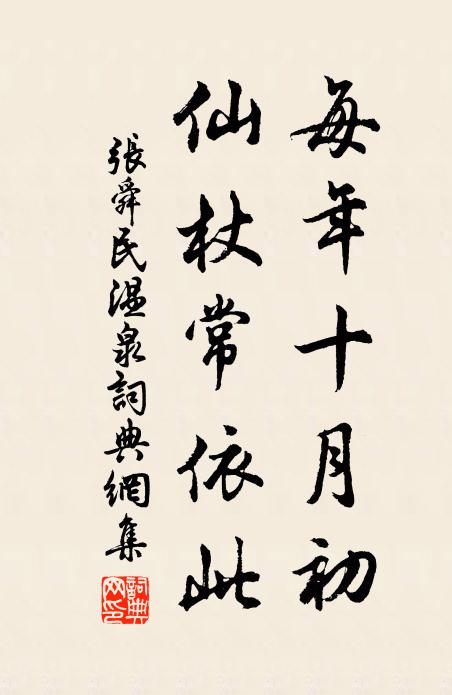 每年十月初
仙杖常依此
張舜民溫泉詞典網集
詞典網印